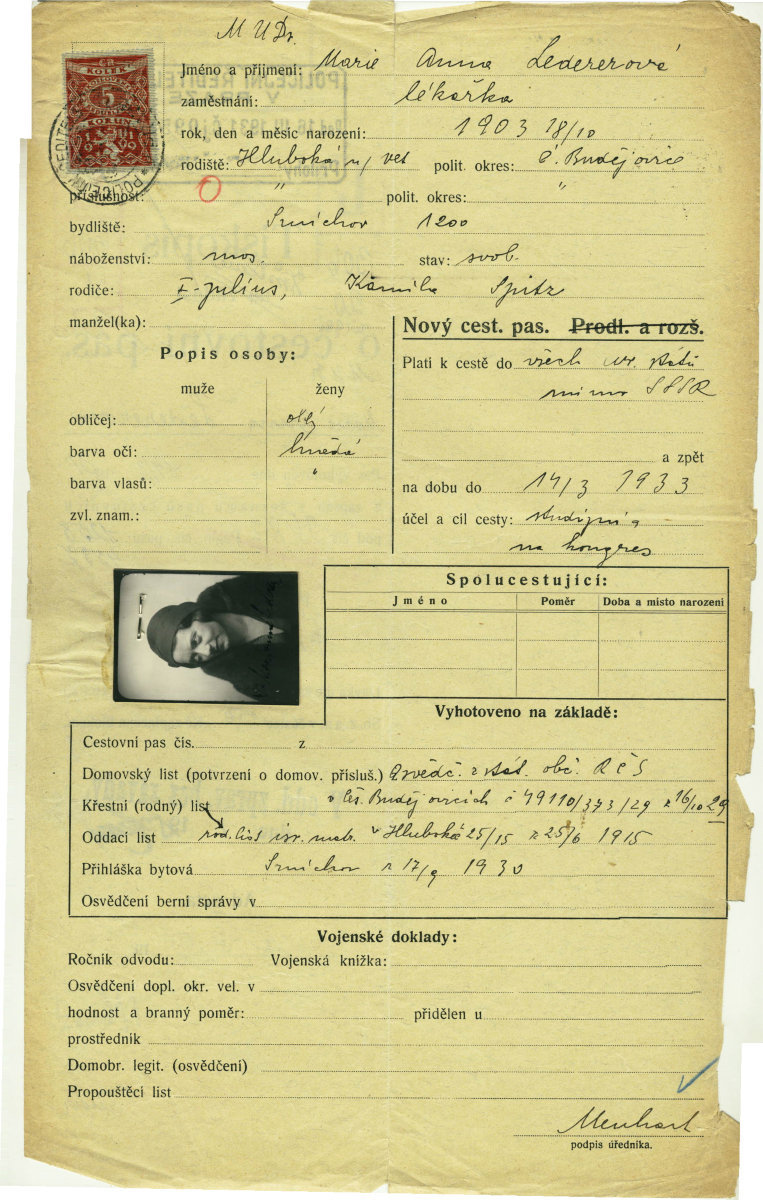 MUDr.
Jméno a příjmení: Marie Anna Ledererová
zaměstnání: lékařka
rok, den a měsíc narození: 1903 18/10
rodiště: Hluboká n/ Vlt polit. okres: Č. Budějovice
příslušnost: " polit. okres: "
bydliště: Smíchov 1200
náboženství: mos. stav: svob.
rodiče: Julius, Kamila Spitz
manžel(ka):
Nový cest. pas. Prodl. a rozš.
Popis osoby:
muže ženy
Platí k cestě do všech ev. států
mimo SSSR
obličej: obl.
barva očí: hnědé
a zpět
barva vlasů: "
na dobu do 14/3 1933
zvl. znam.:
účel a cíl cesty: studijní a
na kongres
Spolucestující:
Jméno Poměr Doba a místo narození
Vyhotoveno na základě:
Cestovní pas čís. z
Domovský list (potvrzení o domov. přísluš.) Osvědč. z stát. obč. RČS
v Čes. Budějovicích č 49110/373/29 z 16/10 29
Křestní (rodný) list
Oddací list rod. list isr. mat. v Hluboká 25/15 z 25/6 1915
Přihláška bytová Smíchov z 17/9 1930
Osvědčení berní správy v
Vojenské doklady:
Ročník odvodu: Vojenská knížka:
Osvědčení dopl. okr. vel. v
hodnost a branný poměr: přidělen u
prostředník
Domobr. legit. (osvědčení)
Propouštěcí list
Menhart
podpis úředníka.